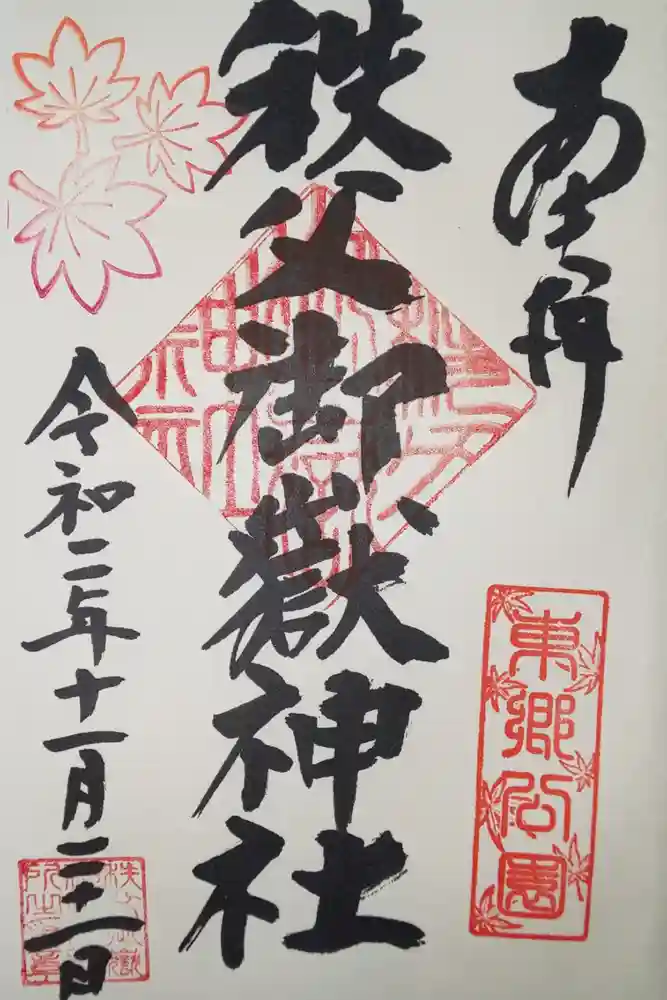 奉拝
東郷公園
秩父御嶽神社
令和二年十一月二十一日